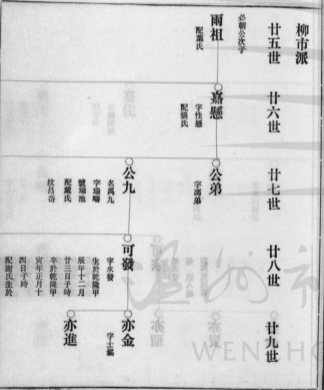 柳市派
廿五世
廿六世
廿七世
廿八世
廿九世
必朝公次子
雨祖
配葉氏
嘉懸
字性懸
配張氏
公弟
公九
名禹九
字瑞疇
號瑞池
配戴氏
可發
字永發
生於乾隆甲
辰年十二月
廿三日子時
卒於乾隆甲
寅年正月十
四日子時
配謝氏生於
亦金
亦進
WEN HO